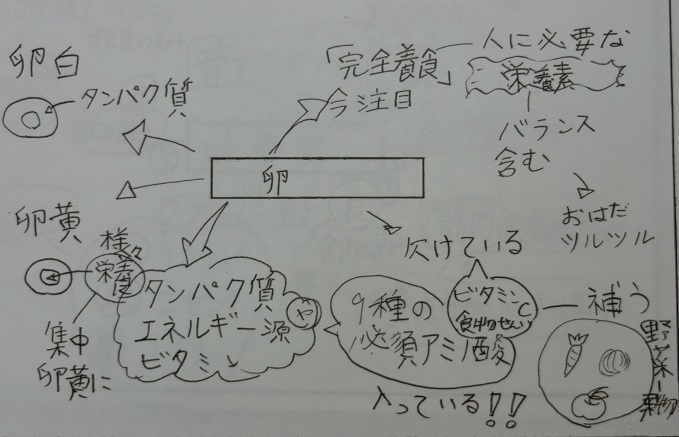 卵白
タンパク質
「完全養食」
今注目
人に必要な
栄養素
バランス
含む
おはだ
ツルツル
卵
卵黄
様々
栄養
集中
卵黄に
タンパク質
エネルギー源
ビタミン
や
9種の
必須アミノ酸
入っている!!
欠けている
ビタミンC
食物せんい
補う
野菜
果物